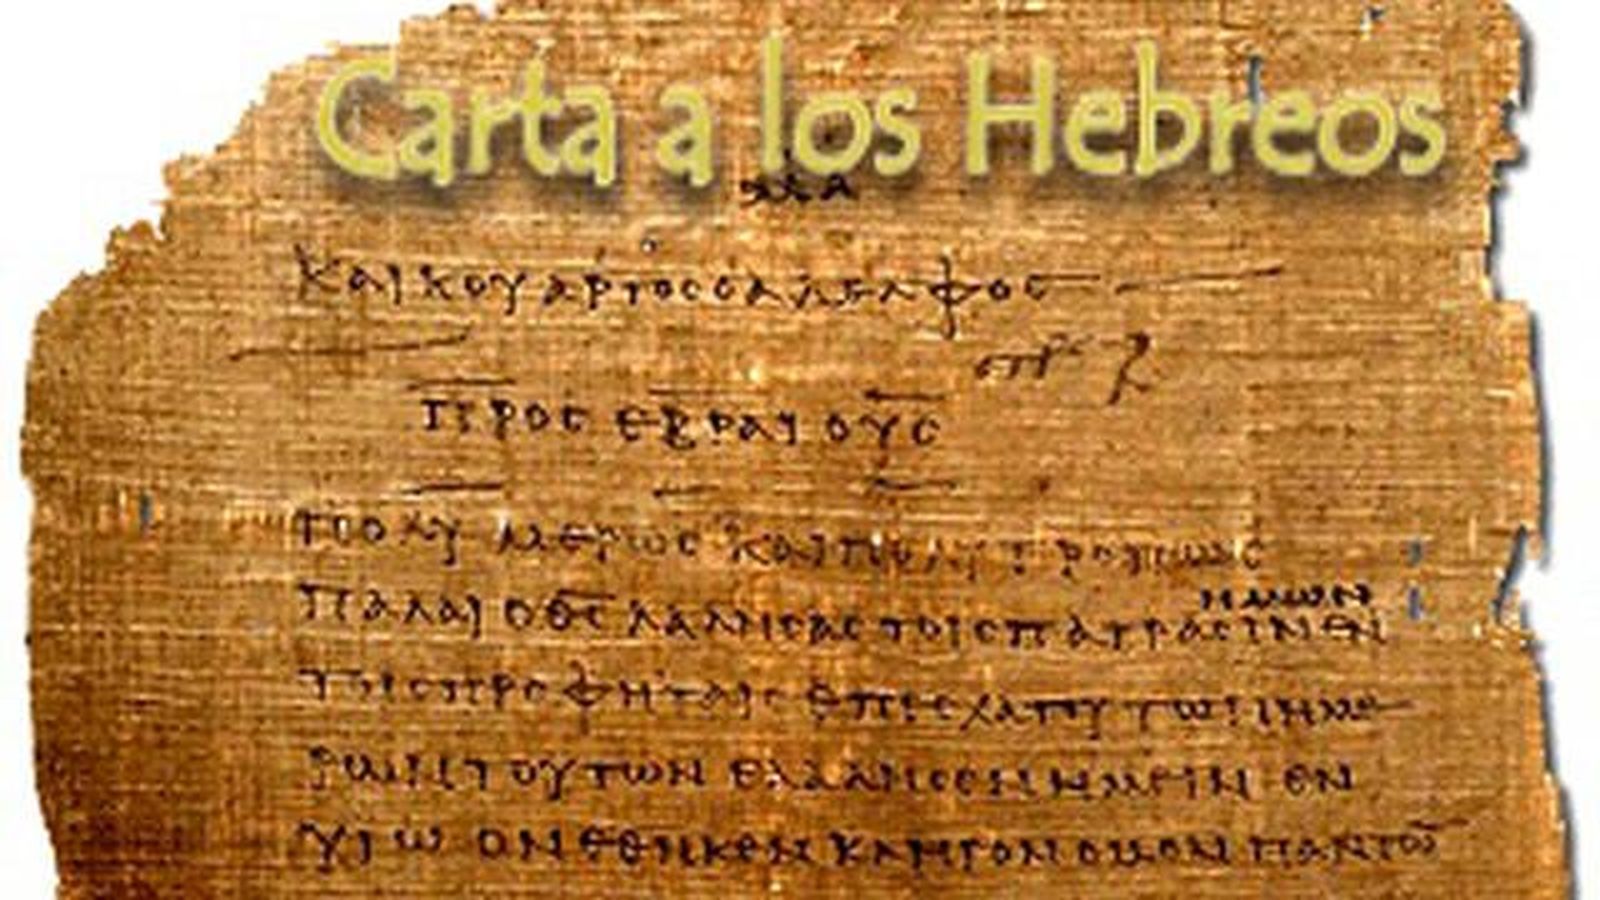 Carta a los Hebreos
μα
και κουαρτος ο αδελφος
στιχ
προς εβραιους
πολυμερως και πολυτροπως
ημων
παλαι ο θς λαλησας τοις πατρασιν εν
τοις προφηταις επ εσχατου των ημε
ρων τουτων ελαλησεν ημειν εν
υιω ον εθηκεν κληρονομον παντω